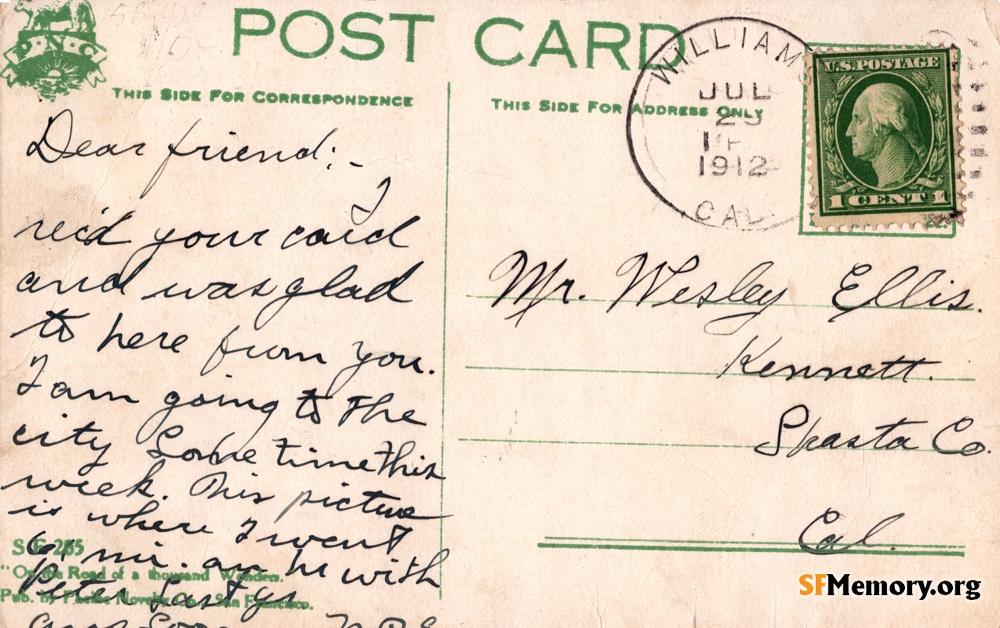 P.N.C.
POST CARD
THIS SIDE FOR CORRESPONDENCE
THIS SIDE FOR ADDRESS ONLY
WILLIAMS
JUL
29
1912
CAL.
U.S. POSTAGE
1 CENT 1
Dear friend:-
I
rec'd your card
and was glad
to here from you.
I am going to the
city Sometime this
week. This picture
is where I went
61 mi. an hr with
Peter Last yr
S F-265
"On the Road of a thousand Wonders.
Pub. by Pacific Novelty Co., San Francisco.
Mr. Wesley Ellis.
Kennett.
Shasta Co.
Cal.
SFMemory.org